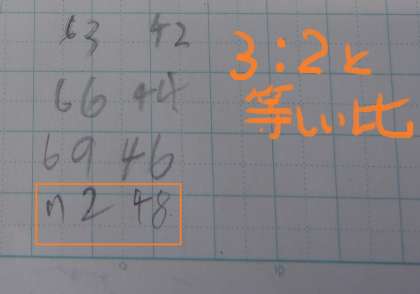 63 42
66 44
69 46
72 48
3:2と
等しい比
9 10